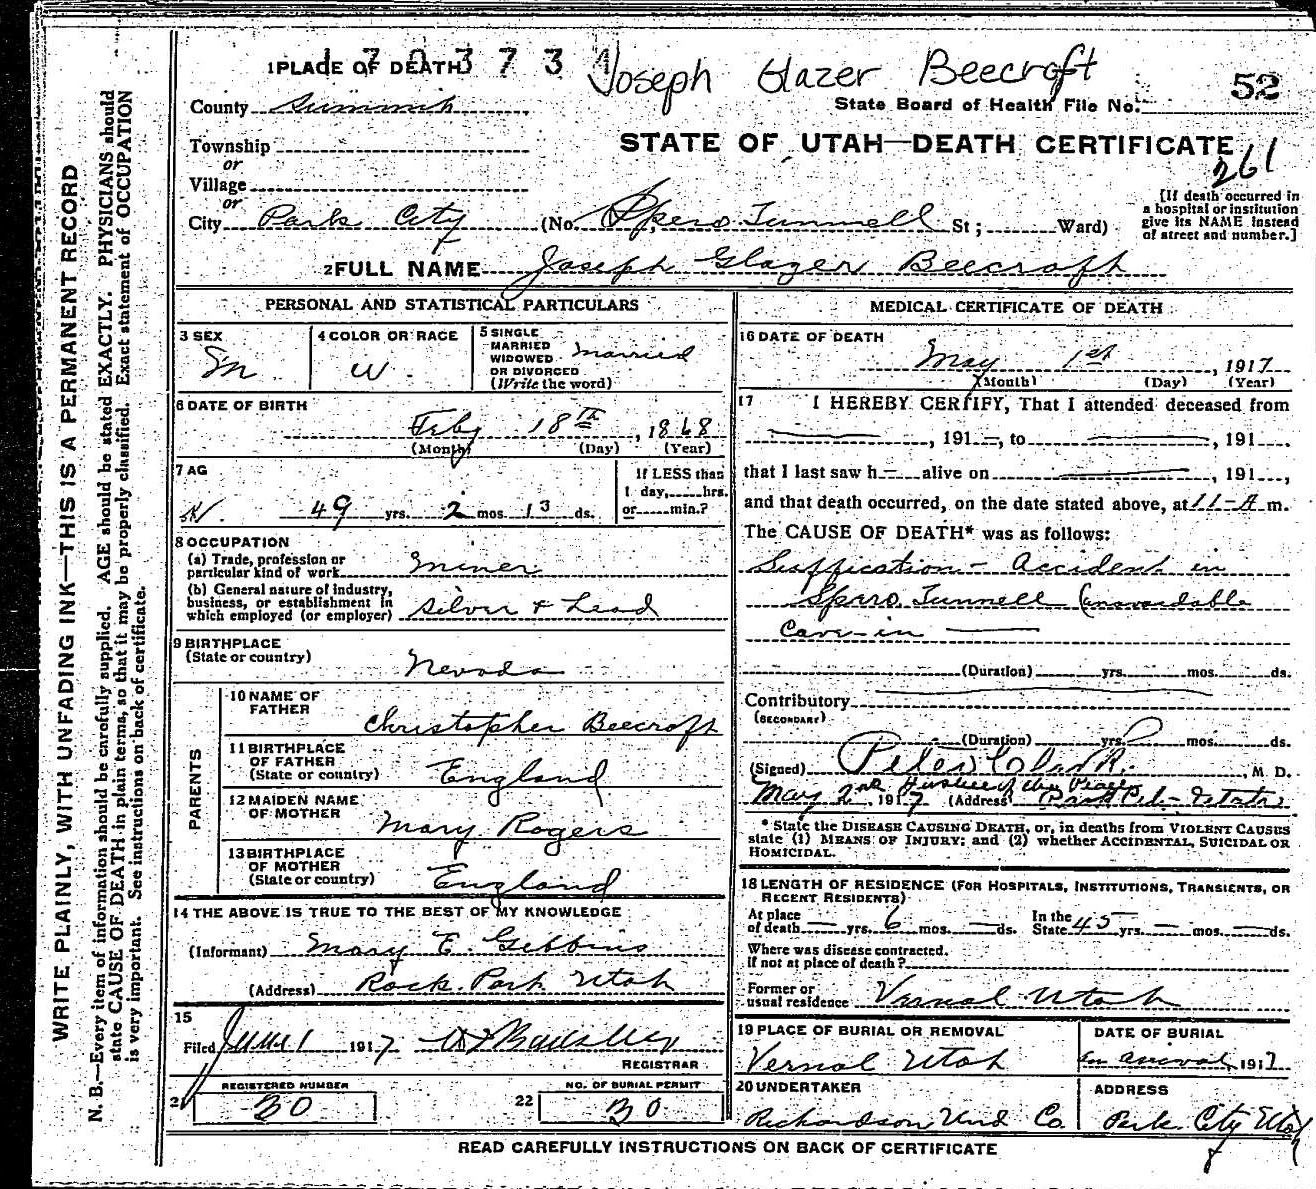 1 PLACE OF DEATH
1 7 0 3 7 3 1
Joseph Glazer Beecroft
52
County Summit
State Board of Health File No.
Township
or
Village
or
STATE OF UTAH—DEATH CERTIFICATE
261
City Park City (No. Spero Tunnell St ; Ward)
[If death occurred in
a hospital or institution
give its NAME instead
of street and number.]
2 FULL NAME Joseph Glazer Beecroft
PERSONAL AND STATISTICAL PARTICULARS
3 SEX
M
4 COLOR OR RACE
W.
5 SINGLE
MARRIED
WIDOWED
OR DIVORCED
(Write the word)
married
6 DATE OF BIRTH
Feby 18th, 1868
(Month) (Day) (Year)
7 AG
49 yrs. 2 mos. 13 ds.
If LESS than
1 day, hrs.
or min.?
8 OCCUPATION
(a) Trade, profession or
particular kind of work Miner
(b) General nature of industry,
business, or establishment in
which employed (or employer) Silver & Lead
9 BIRTHPLACE
(State or country)
Nevada
PARENTS
10 NAME OF
FATHER
Christopher Beecroft
11 BIRTHPLACE
OF FATHER
(State or country)
England
12 MAIDEN NAME
OF MOTHER
Mary Rogers
13 BIRTHPLACE
OF MOTHER
(State or country)
England
14 THE ABOVE IS TRUE TO THE BEST OF MY KNOWLEDGE
(Informant) Mary E. Gibbins
(Address) Rock Park Utah
15
Filed June 1 1917
REGISTRAR
21
REGISTERED NUMBER
30
22
NO. OF BURIAL PERMIT
30
MEDICAL CERTIFICATE OF DEATH
16 DATE OF DEATH
May 1st, 1917
(Month) (Day) (Year)
17 I HEREBY CERTIFY, That I attended deceased from
—, 191—, to —, 191
that I last saw h— alive on —, 191 ,
and that death occurred, on the date stated above, at 11-A m.
The CAUSE OF DEATH* was as follows:
Suffication - Accident in
Spiro Tunnell (unavoidable
Cave-in —
(Duration) yrs. mos. ds.
Contributory
(SECONDARY)
(Duration) yrs. mos. ds.
(Signed) Peter Clark. , M D.
Justice of the Peace
May 2nd, 1917 (Address)
* State the DISEASE CAUSING DEATH, or, in deaths from VIOLENT CAUSES
state (1) MEANS OF INJURY; and (2) whether ACCIDENTAL, SUICIDAL OR
HOMICIDAL.
18 LENGTH OF RESIDENCE (FOR HOSPITALS, INSTITUTIONS, TRANSIENTS, OR
RECENT RESIDENTS)
At place
of death — yrs. 6 mos. — ds.
In the
State 45 yrs. — mos. — ds.
Where was disease contracted.
If not at place of death?
Former or
usual residence Vernal Utah
19 PLACE OF BURIAL OR REMOVAL
Vernal Utah
DATE OF BURIAL
on arrival 1917
20 UNDERTAKER
Richardson Und Co.
ADDRESS
Park City Utah
READ CAREFULLY INSTRUCTIONS ON BACK OF CERTIFICATE
WRITE PLAINLY, WITH UNFADING INK—THIS IS A PERMANENT RECORD
N. B.—Every item of information should be carefully supplied. AGE should be stated EXACTLY. PHYSICIANS should
state CAUSE OF DEATH in plain terms, so that it may be properly classified. Exact statement of OCCUPATION
is very important. See instructions on back of certificate.